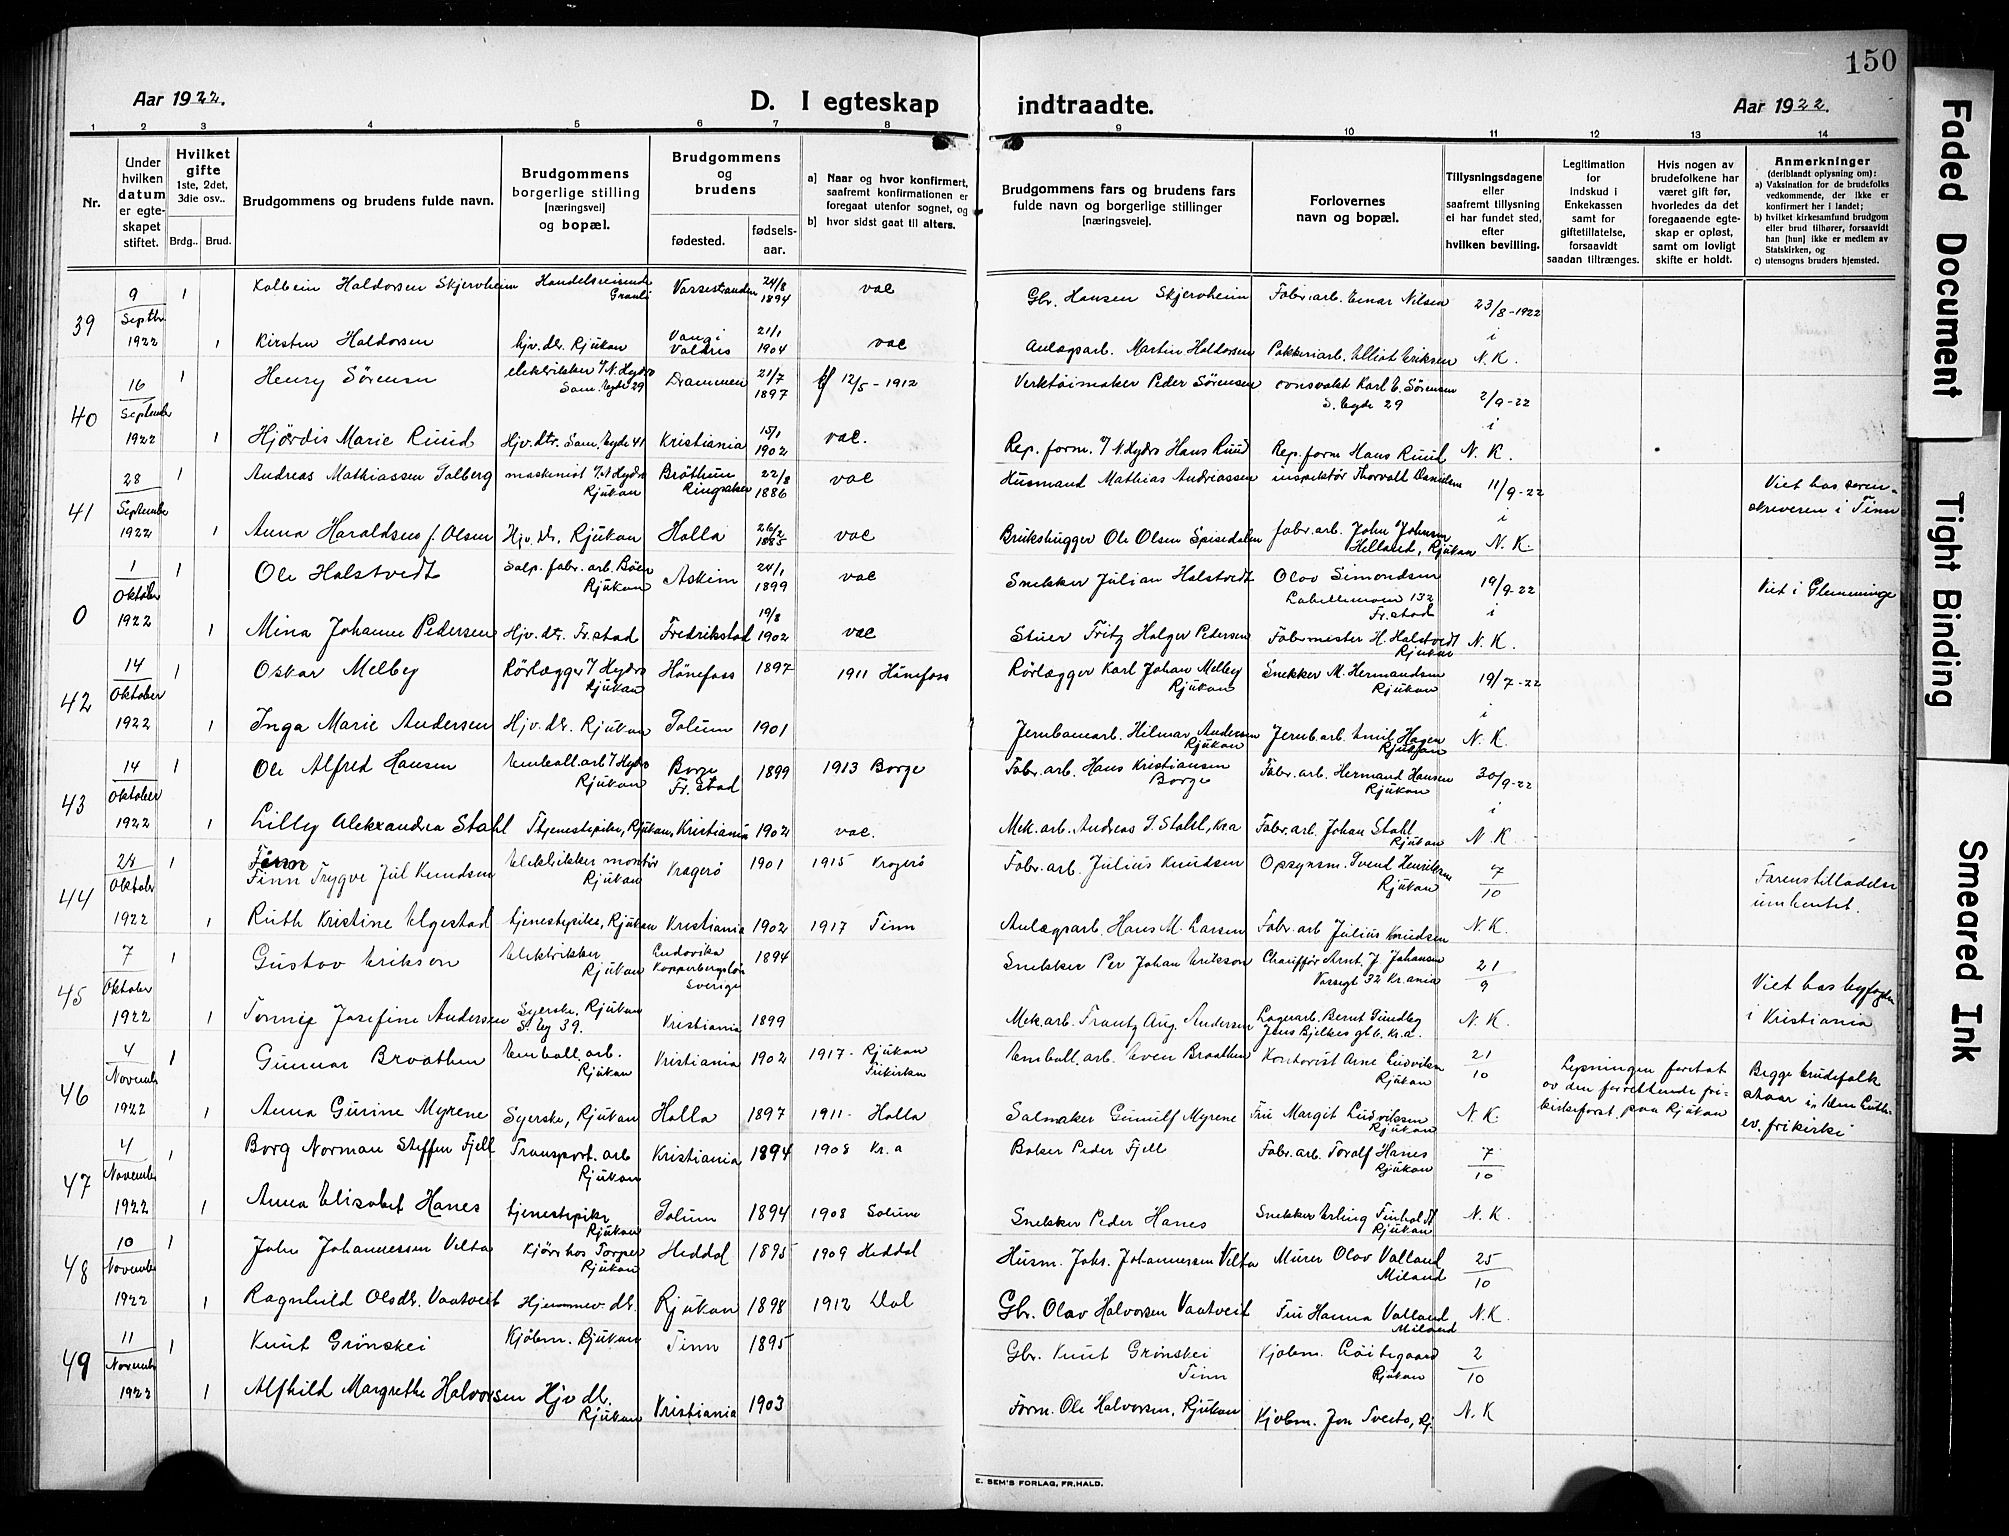 150
Aar 1922.
D. I egteskap indtraadte.
Aar 1922.
1 2 3 4 5 6 7 8 9 10 11 12 13 14
Nr.
Under hvilken datum er egteskapet stiftet.
Hvilket gifte 1ste, 2det, 3die osv..
Brdg.. Brud.
Brudgommens og brudens fulde navn.
Brudgommens borgerlige stilling [næringsvei] og bopæl.
Brudgommens og brudens
fødested. fødsels-aar.
a) Naar og hvor konfirmert, saafremt konfirmationen er foregaat utenfor sognet, og
b) hvor sidst gaat til alters.
Brudgommens fars og brudens fars fulde navn og borgerlige stillinger [næringsveie].
Forlovernes navn og bopæl.
Tillysningsdagene eller saafremt tillysning ei har fundet sted, efter hvilken bevilling.
Legitimation for indskud i Enkekassen samt for giftetillatelse, forsaavidt saadan tiltrænges.
Hvis nogen av brudefolkene har været gift før, hvorledes da det foregaaende egteskap er opløst, samt om lovlig skifte er holdt.
Anmerkninger (deriblandt oplysning om):
a) Vaksination for de brudefolks vedkommende, der ikke er konfirmert her i landet;
b) hvilket kirkesamfund brudgom eller brud tilhører, forsaavidt han [hun] ikke er medlem av Statskirken, og
c) utensogns bruders hjemsted.
39 9 Septbr. 1922 1 Kolbein Haldorsen Skjervheim Handelsreisende Vossestranden 24/8 1894 vac Gbr. Hansen Skjervheim Fabr. arb. Einar Nilsen 23/8-1922 i
1 Kirsten Haldorsen hjv. dtr. Rjukan Vang i Valdres 21/1 1904 vac Anlægsarb. Martin Haldorsen Pakkeriarb. Elliot Eriksen N. K.
40 16 September 1922 1 Henry Sörensen elektriker v/ N. Hydro Sam. Eyde 29 Drammen 21/7 1897 12/5-1912 Verktöimaker Peder Sörensen Karl E. Sörensen S. Eyde 29 2/9-22 i
1 Hjördis Marie Ruud Hjv. dtr. Sam. Eyde 41 Kristiania 15/1 1902 vac. Rep. form. v/ N. Hydro Hans Ruud Rep. form Hans Ruud N. K.
41 28 September 1922 1 Andreas Mathiassen Talberg maskinist v/ N. Hydro Rjukan Ringsaker 22/8 1886 vac Husmand Mathias Andreassen inspektör Thorvall Danielsen 11/9-22 i Viet hos sorenskriveren i Tinn
1 Anna Haraldsen f. Olsen Hjv. dtr. Rjukan Holla 26/2 1885 vac Brukshugger Ole Olsen Spisedalen fabr. arb. John Johnsen Helland, Rjukan N. K.
0 1 Oktober 1922 1 Ole Halstvedt Salp. fabr. arb. Böen Rjukan Askim 24/1 1899 vac Snekker Julian Halstvedt Olav Simondsen 132 Fr.stad 19/9-22 i Viet i Glemminge
1 Mina Johanne Pedersen Hjv. dtr. Fr.stad Fredrikstad 19/8 1902 vac Stuer Fritz Holger Pedersen Fabr. mester H. Halstvedt Rjukan N. K.
42 14 Oktober 1922 1 Oskar Melbey Rörlægger v/ Hydro Rjukan Hönefoss 1897 1911 Hönefoss Rörlægger Karl Johan Melbey Rjukan Snekker M. Hermandsen Rjukan 19/7-22 i
1 Inga Marie Andersen Hjv. dtr. Rjukan Solum 1901 Jernbanearb. Hilmar Andersen Rjukan Jernb. arb. Emil Hagen Rjukan N. K.
43 14 Oktober 1922 1 Ole Alfred Hansen Emball. arb v/ Hydro Rjukan Borge Fr. stad 1899 1913 Borge Fabr. arb. Hans Kristiansen Borge Fabr. arb. Hermand Hansen Rjukan 30/9-22 i
1 Lilley Alekxandra Stahl Tjenestepike, Rjukan, Kristiania 1902 vac. Mek. arb. Andreas G. Stahl, Kr.a Fabr. arb. Johan Stahl Rjukan N. K
44 28 Oktober 1922 1 Finn Trygve Jul Knudsen Elektrikker montör Rjukan Kragerö 1901 1915 Kragerö Fabr. arb. Julius Knudsen Opsynsm. Svend Henriksen Rjukan 7/10 Farens tilladelse innhentet.
1 Ruth Kristine Elgestad tjenestepike, Rjukan Kristiania 1902 1917 Tinn Anlægsarb. Hans M. Larsen Fabr. arb Julius Knudsen N. K.
45 7 Oktober 1922 1 Gustav Erikson Elektrikker Rjukan Ludvika Kopperbergslän Sverige 1894 Snekker Per Johan Erikson Chauffør Arnt J. Johansen 32 Kr.ania 21/9 Viet hos byfogden i Kristiania
1 Josefine Andersen Syerske, Rjukan S. Ey 39. Kristiania 1899 Mek. arb. Frantz Aug. Andersen Lagerarb. Bernt Sundby Jens Bjelkes gt 6. Kr. a. N. K.
46 4 Novemb. 1922 1 Gunnar Braathen Emball. arb. Rjukan Kristiania 1902 1917. Rjukan Frikirken Emball. arb. Even Braathen Kontorist Arne Ludviksen Rjukan 21/10 Lysningen foretat av den forrettende frikirkeforst. paa Rjukan Begge brudefolk staar i den Luth. ev. frikirke
1 Anna Gurine Myrene Syerske, Rjukan Holla 1897 1911. Holla Salmaker Gunulf Myrene Fru Margit Ludviksen Rjukan N. K.
47 4 November 1922 1 Borg Norman Steffen Fjell Transport. arb Rjukan Kristiania 1894 1908 Kr. a Baker Peder Fjell Fabr. arb. Toralf Hanes Rjukan 7/10
1 Anna Elisabet Hanes tjenestepike, Rjukan Solum 1894 1908 Solum Snekker Peder Hanes Snekker Erling Finholdt Rjukan N. K.
48 10 November 1922 1 John Johannessen Velta Rjukan Heddal 1895 1909 Heddal Husm. Johs. Johannessen Velta Murer Olav Valland Miland 25/10
1 Ragnhild Olsdtr. Vaatveit Hjemmev. dtr. Rjukan 1898 1912 Dal Gbr. Olav Halvorsen Vaatveit Fru Hanna Valland Miland N. K.
49 11 Novemb. 1922 1 Knut Grönskei Kjöbm. Rjukan Tinn 1895 Gbr. Knut Grönskei Tinn Kjöbm. Rjukan 2/10
1 Alfhild Margrethe Halvorsen Hjv dtr. Rjukan Kristiania 1903 Form. Ole Halvorsen, Rjukan Kjobm. Jon Tveito, Rj. N. K
E. SEM'S FORLAG, FR.HALD.
Faded Document
Tight Binding
Smeared Ink